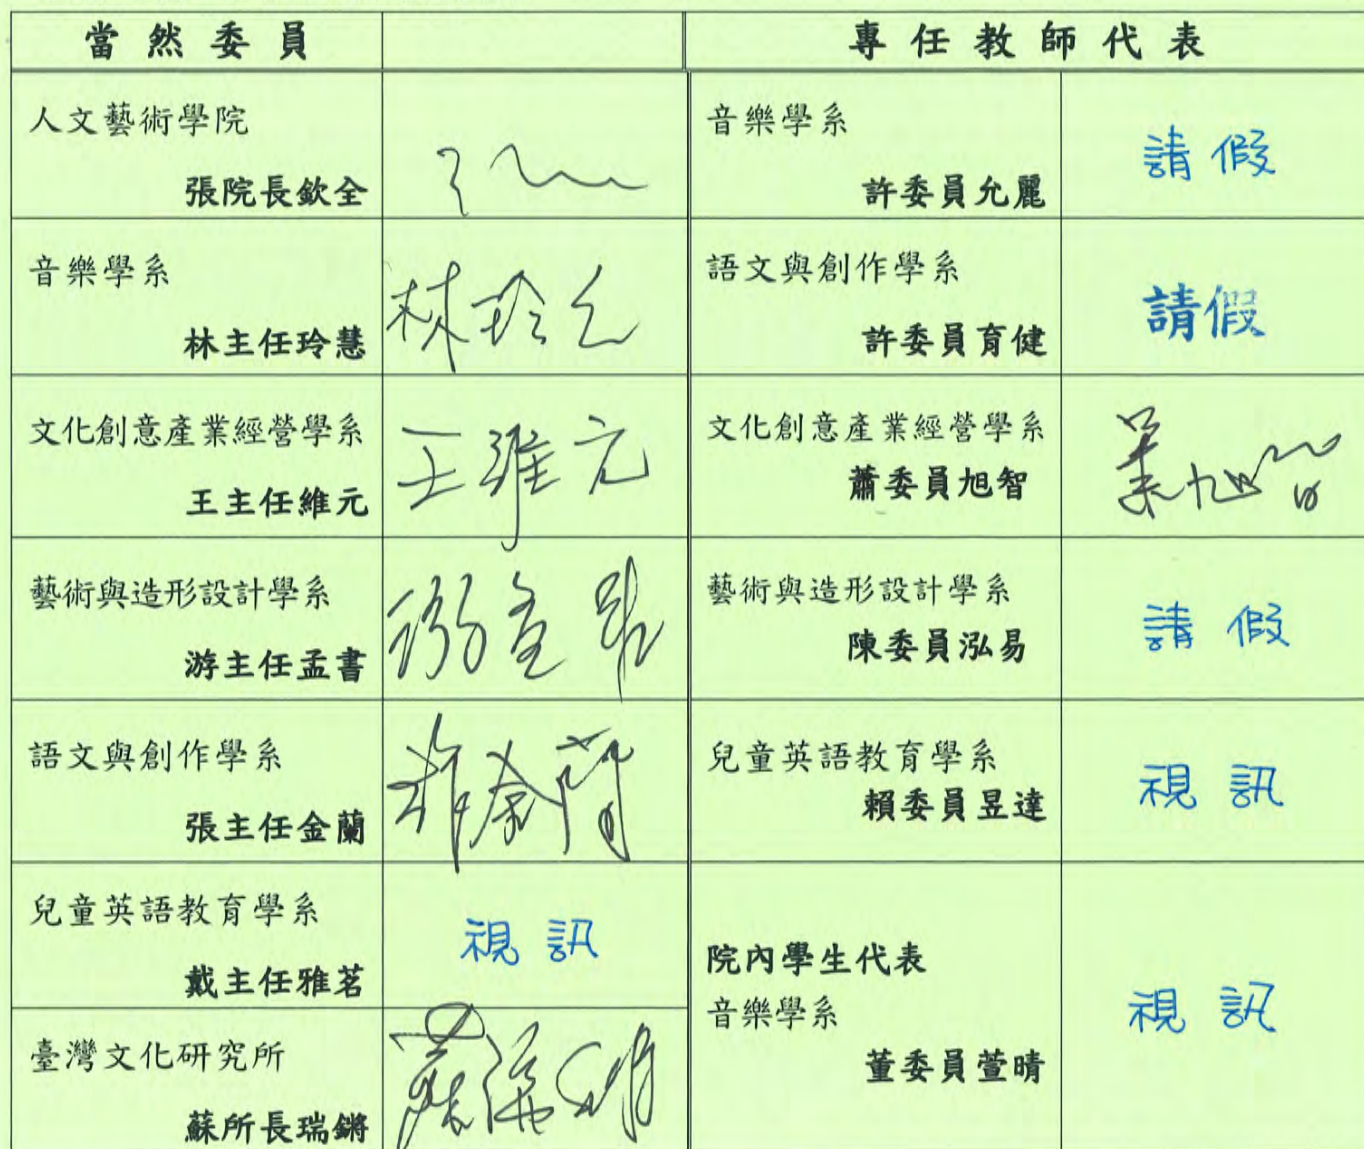 當然委員
專任教師代表
人文藝術學院
張院長欽全
音樂學系
許委員允麗
請假
音樂學系
林主任玲慧
林玲
語文與創作學系
許委員育健
請假
文化創意產業經營學系
王主任維元
王維元
文化創意產業經營學系
蕭委員旭智
藝術與造形設計學系
游主任孟書
藝術與造形設計學系
陳委員泓易
請假
語文與創作學系
張主任金蘭
兒童英語教育學系
賴委員昱達
視訊
兒童英語教育學系
戴主任雅茗
視訊
臺灣文化研究所
蘇所長瑞鏘
院內學生代表
音樂學系
董委員萱晴
視訊